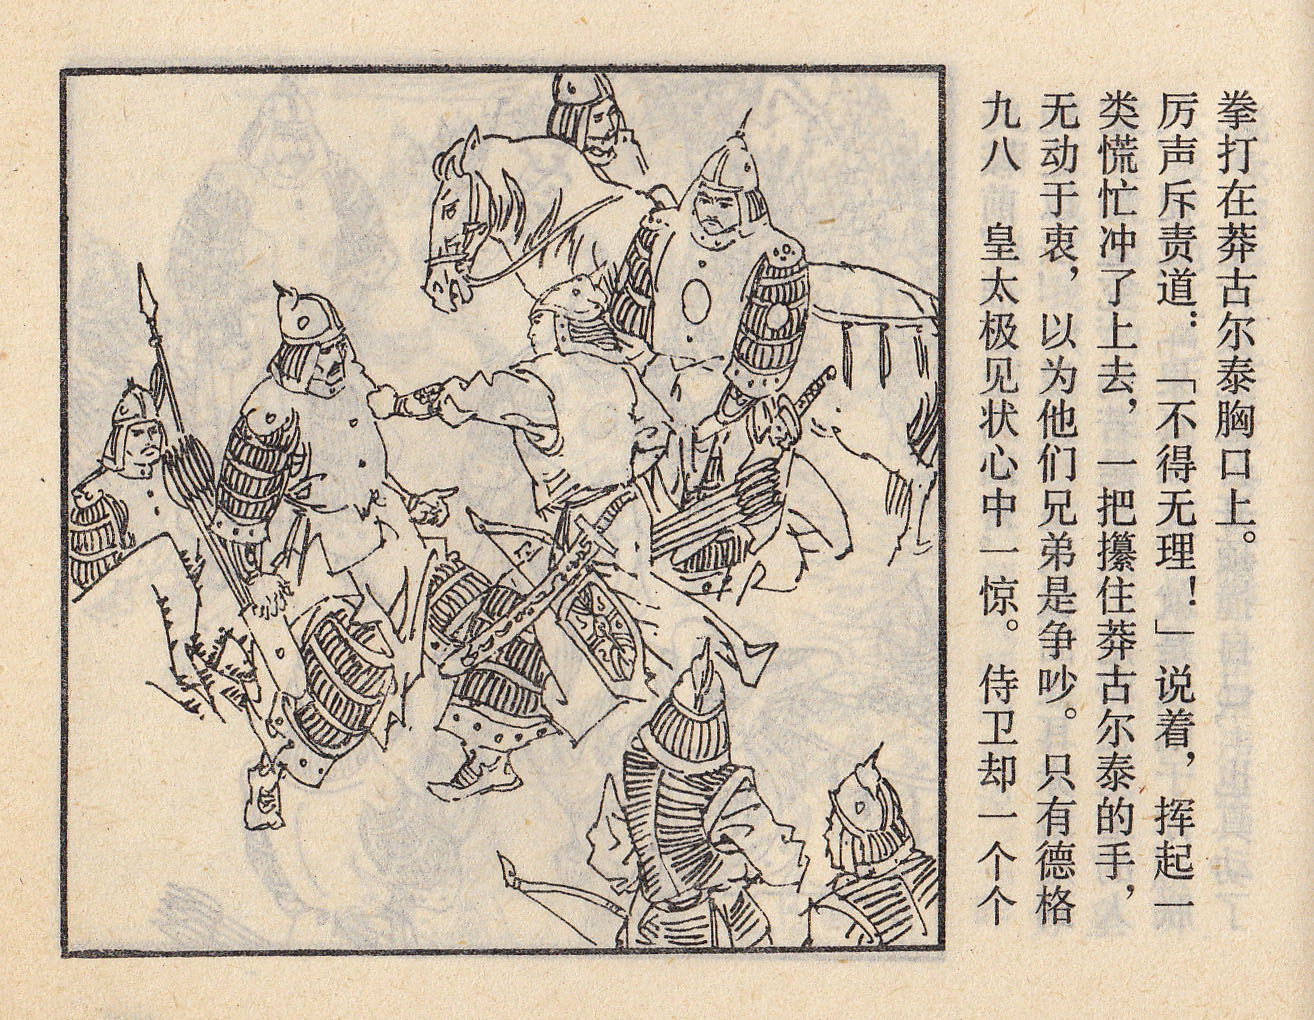 九八　皇太极见状心中一惊。侍卫却一个个
无动于衷，以为他们兄弟是争吵。只有德格
类慌忙冲了上去，一把攥住莽古尔泰的手，
厉声斥责道：「不得无理！」说着，挥起一
拳打在莽古尔泰胸口上。